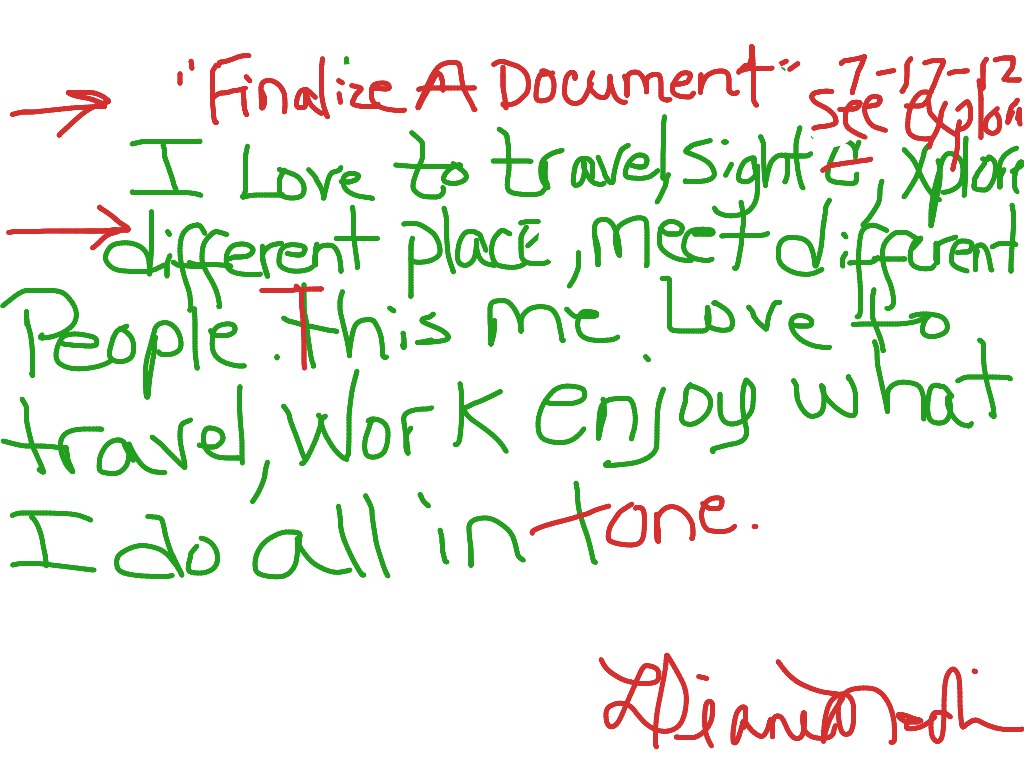 "Findie A Document" 7-17-12
see explor
I Love to travel, sight,
different place, meet different
People. This me Love to
travel, work enjoy what
I do all in tone.
Diana